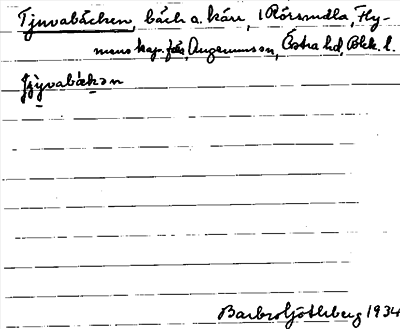 Tjuvabäcken, bäch a. kärr, i Rörsmåla, Fly-
mens kap. förs., Augerumssn, Östra hd, Blek. l.
Jÿvabäkan
Barbro Götlberg 1934